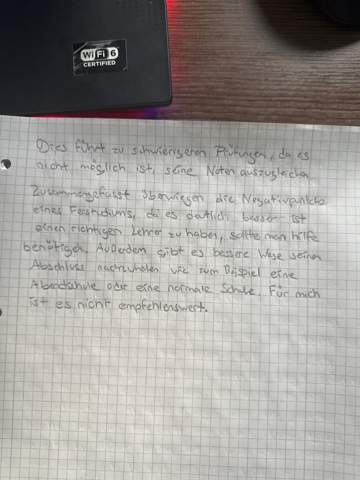 Wi Fi 6
CERTIFIED
Dies führt zu schwierigeren Prüfungen, da es
nicht möglich ist, seine Noten auszugleichen.
Zusammengefasst überwiegen die Negativpunkte
eines Fernstudiums, da es deutlich besser ist
einen richtigen Lehrer zu haben, sollte man hilfe
benötigen. Außerdem gibt es bessere Wege seinen
Abschluss nachzuholen wie zum Beispiel eine
Abendschule oder eine normale Schule. Für mich
ist es nicht empfehlenswert.